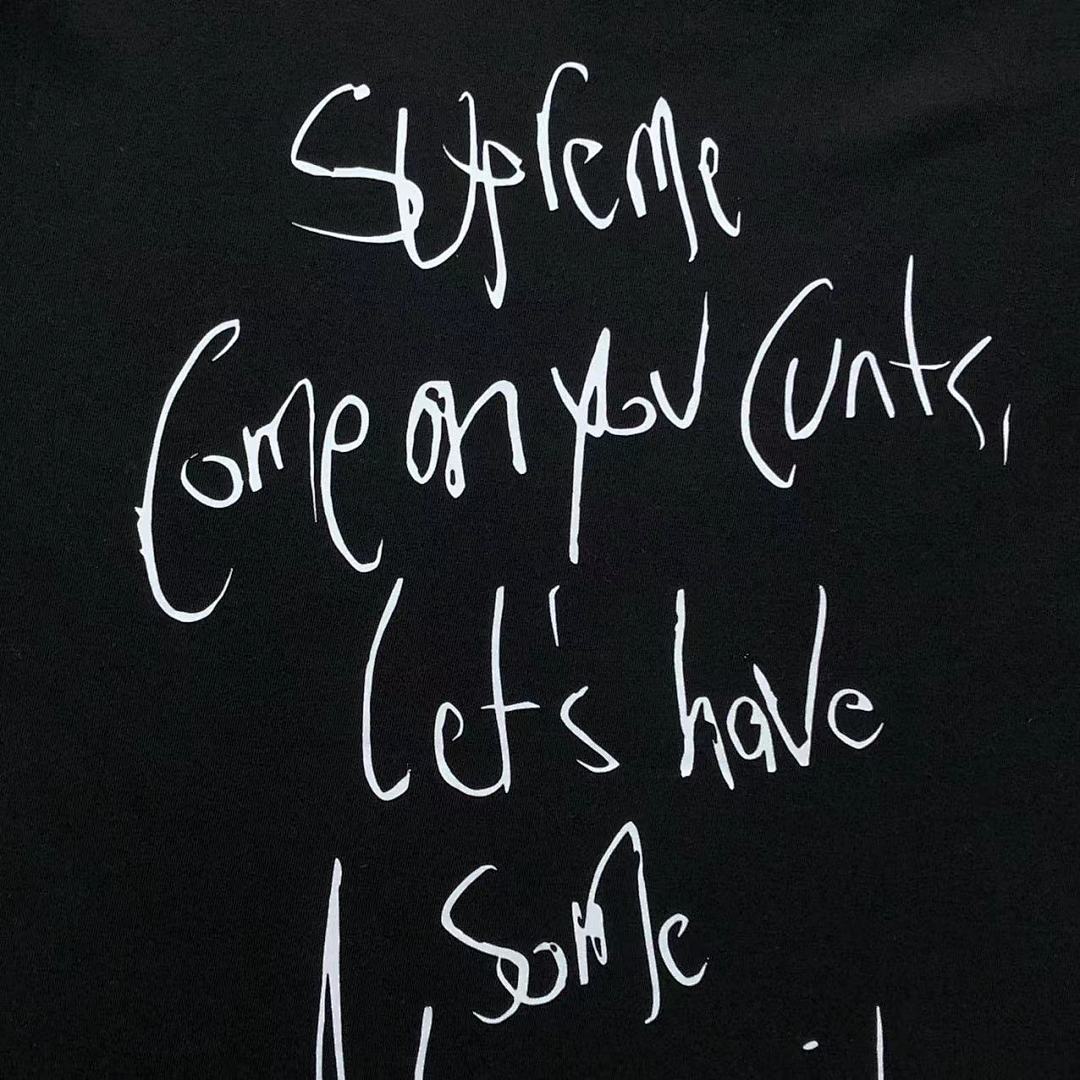 Supreme
Come on you cunts,
let's have
some